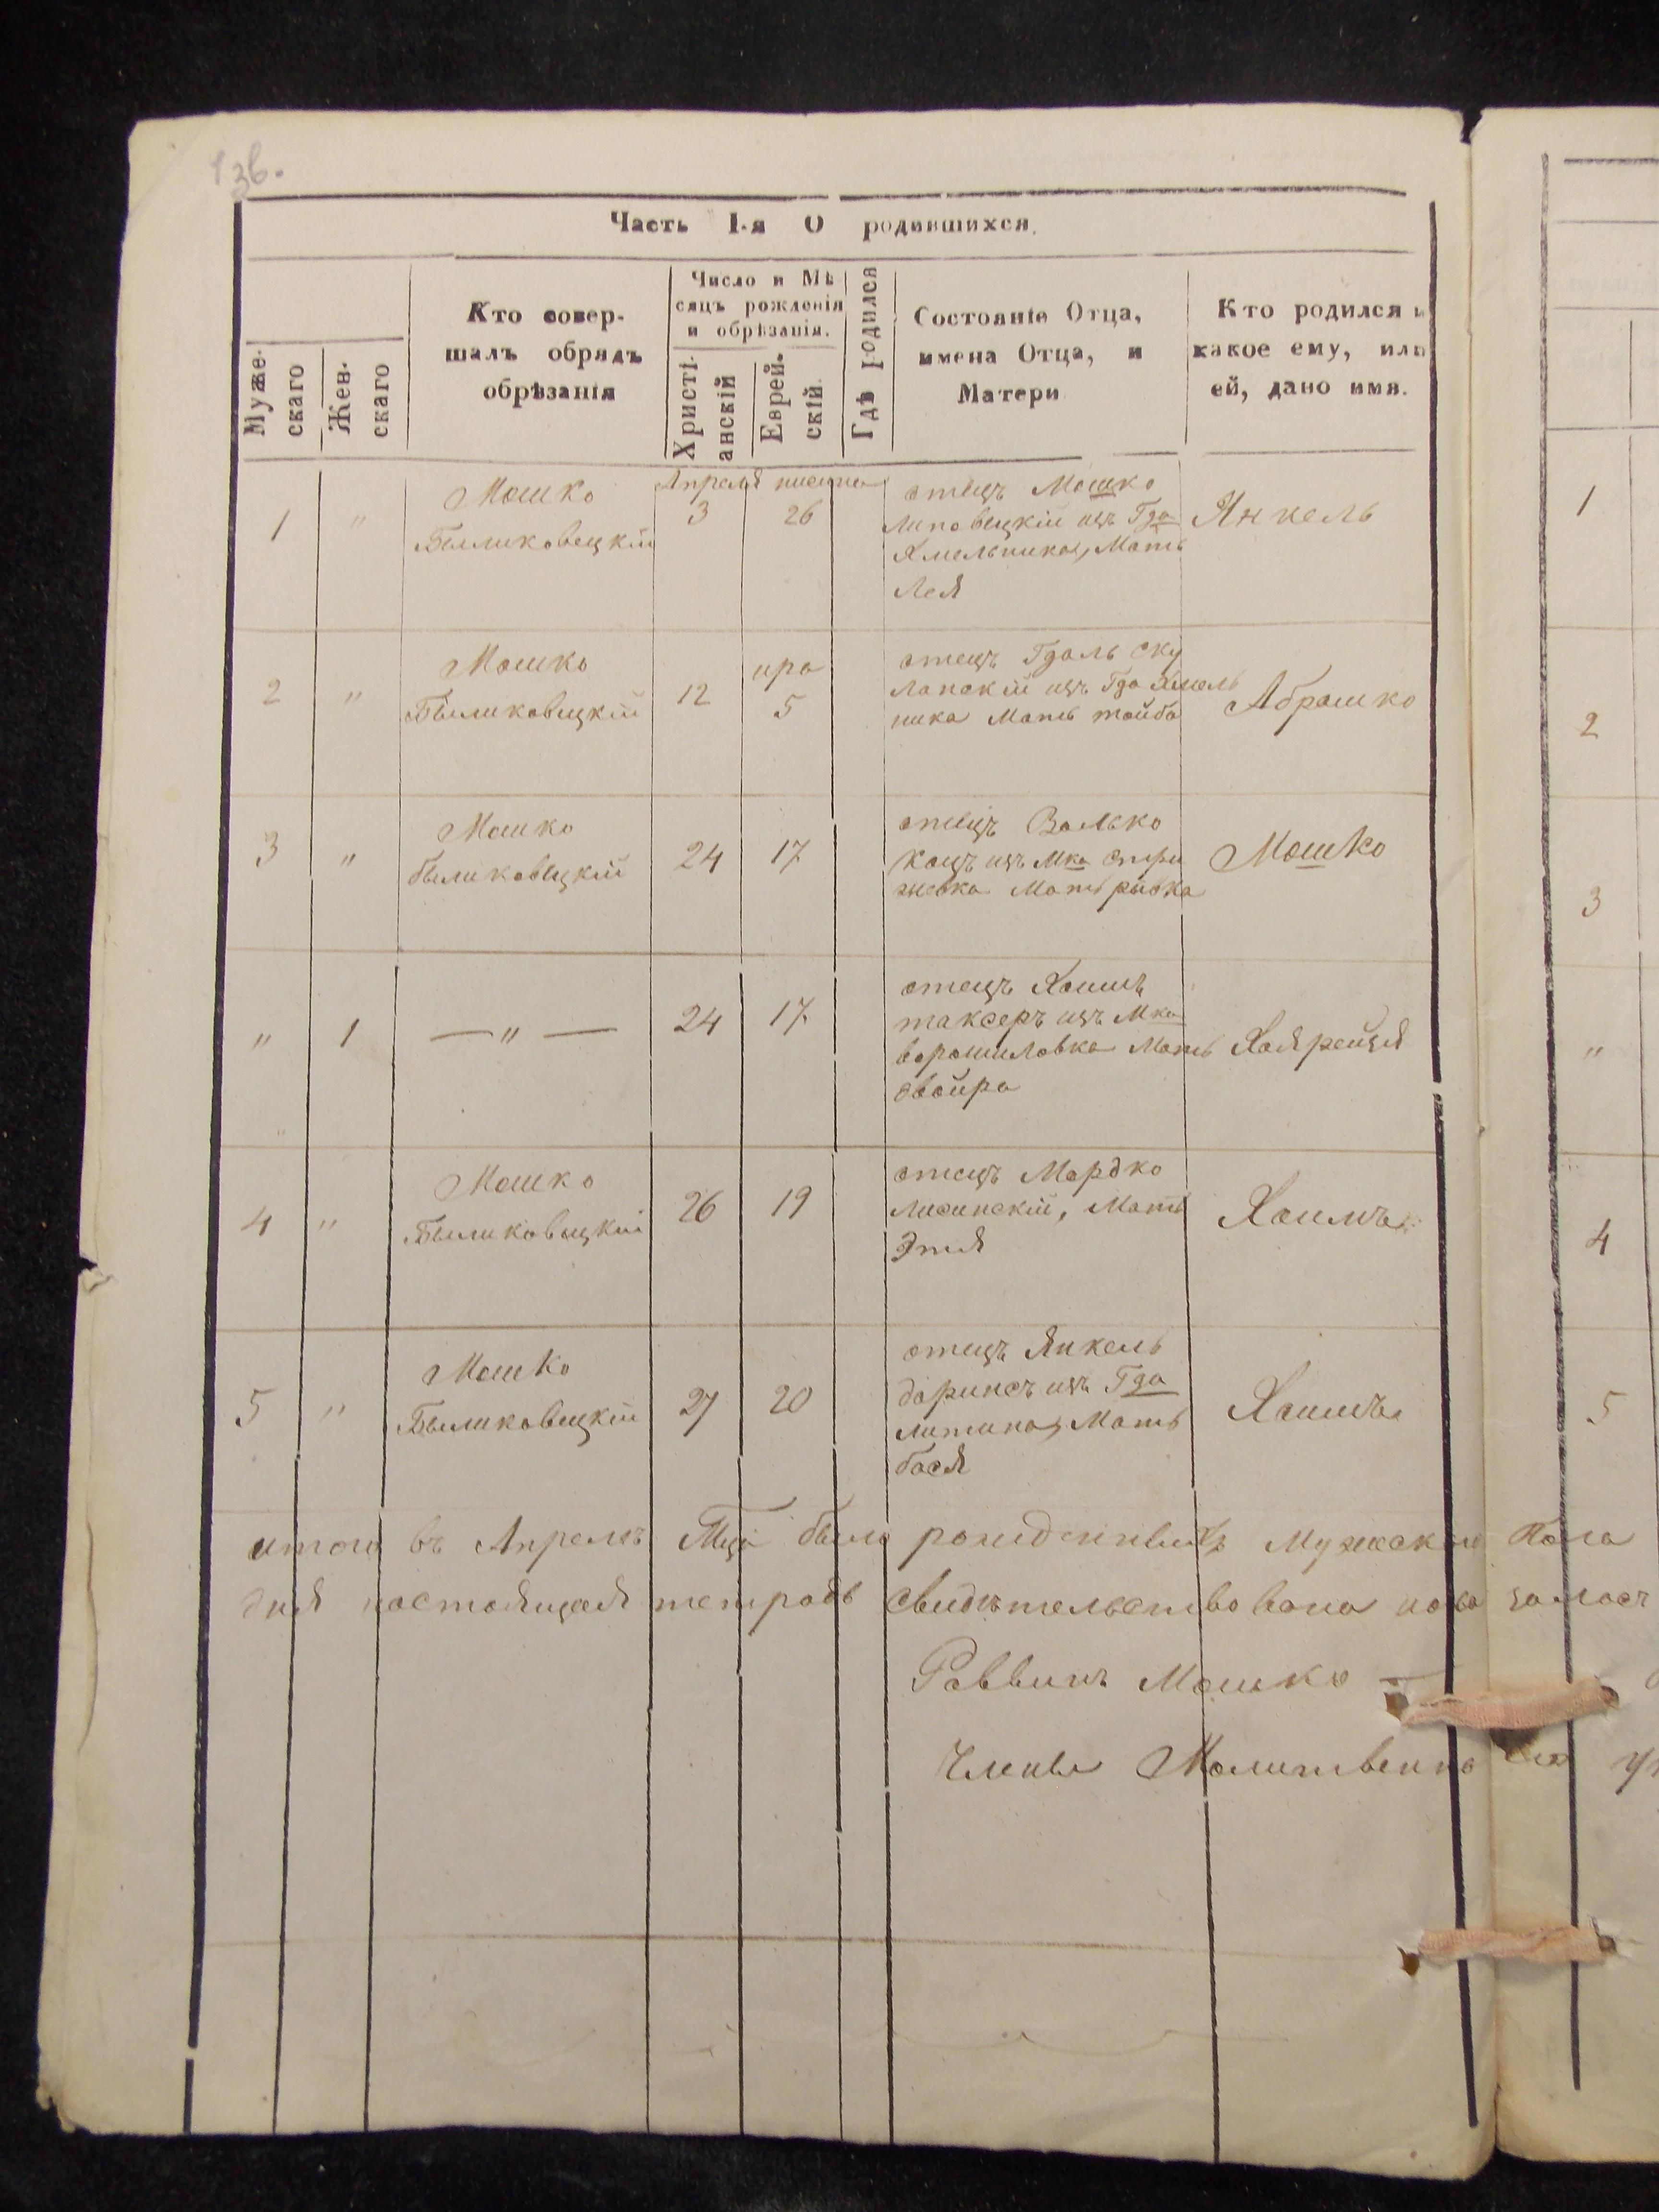 13в.
Часть I-я О родившихся.
Муже-
скаго
Жен-
скаго
Кто совер-
шалъ обрядъ
обрѣзанія
Число и Мѣ
сяцъ рожденія
и обрѣзанія.
Христі-
анскій
Еврей-
скій.
Гдѣ родился
Состояніе Отца,
имена Отца, и
Матери
Кто родился и
какое ему, или
ей, дано имя.
1 " Мошко
Быликовецкій
Апреля нисена
3 26
отецъ Мошко
Липовецкій изъ Гда
Хмельника, Мать
Лея
Янкель
2 " Мошко
Быликовецкій
12
ира
5
отецъ Гдаль Ску
ланскій изъ Гда Хмель
ника Мать тойба
Абрашко
3 " Мошко
быликовецкій
24 17
отецъ Волько
Кацъ изъ Мка Стри
жевка Мать рывка
Мошко
" 1 — " —
24 17
отецъ Хаимъ
таксеръ изъ Мка
ворошиловка Мать
двойра
Хаярейзя
4 " Мошко
Быликовецкій
26 19
отецъ Мордко
Лисинскій, Мать
Этя
Хаимъ
5 " Мошко
Быликовецкій
27 20
отецъ Янкель
изъ Гда
литина, Мать
бася
Хаимъ
итого въ Апрелѣ Мцѣ было рожденныхъ Мужскаго Пола
дня настоящая тетрадь свидѣтельствована
Раввинъ Мошко —
Члены Молитвенно
1
2
3
"
4
5